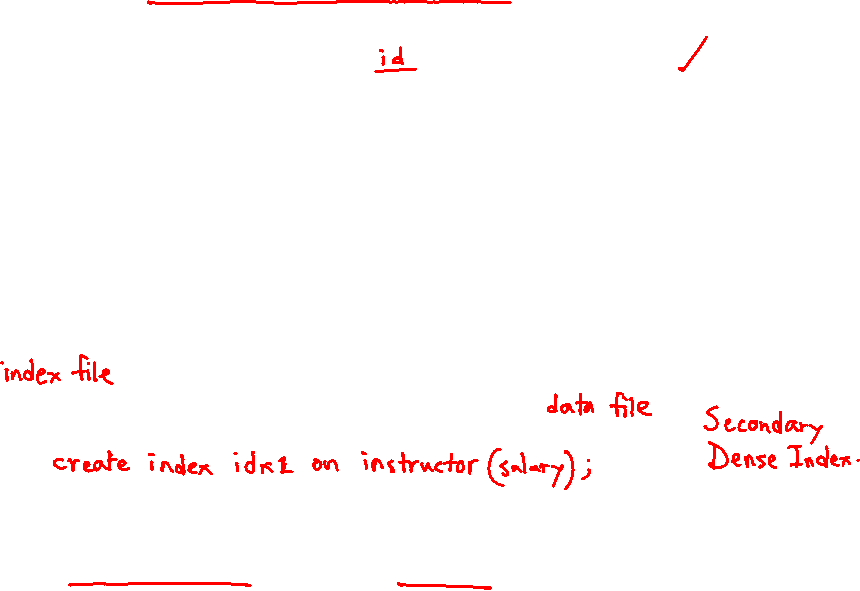 id
index file
data file
Secondary
Dense Index.
create index idx1 on instructor (salary);